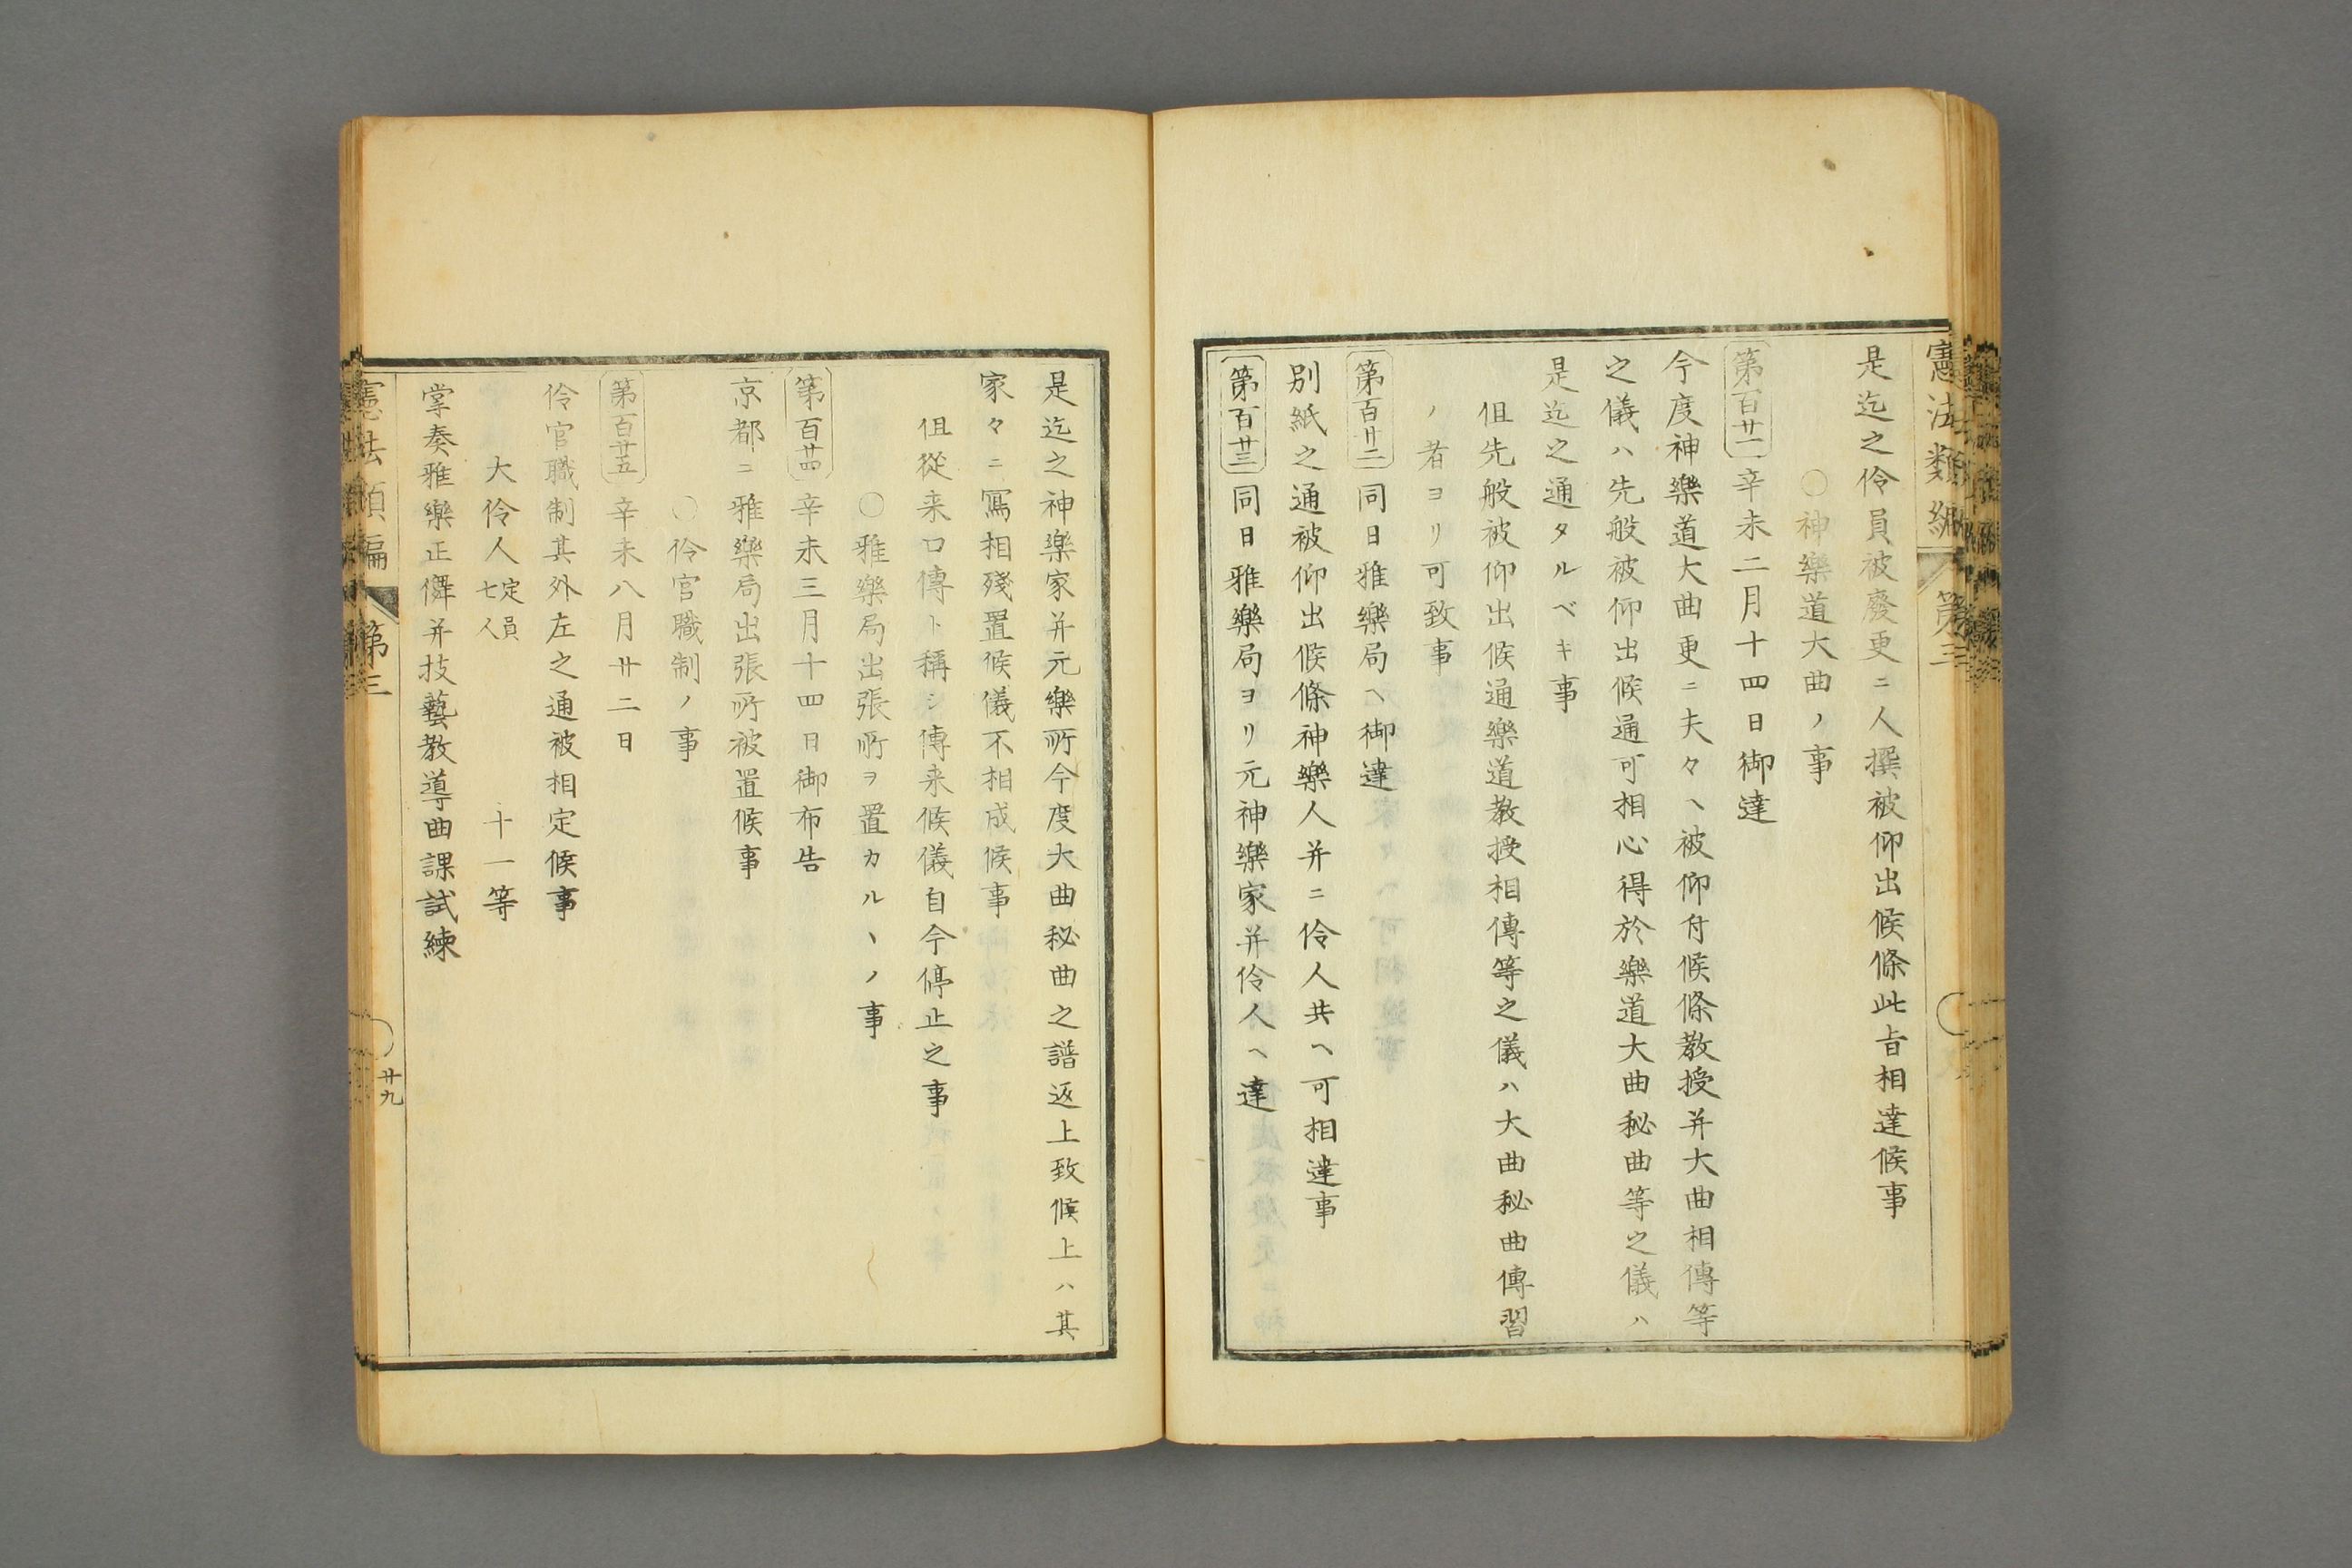 憲法類編 第三
是迄之伶員被廢更ニ人撰被仰出候條此旨相達候事
〇神樂道大曲ノ事
第百廿一 辛未二月十四日御達
今度神樂道大曲更ニ夫々ヘ被仰付候條教授并大曲相傳等
之儀ハ先般被仰出候通可相心得於樂道大曲秘曲等之儀ハ
是迄之通タルベキ事
但先般被仰出候通樂道教授相傳等之儀ハ大曲秘曲傳習
ノ者ヨリ可致事
第百廿二 同日雅樂局ヘ御達
別紙之通被仰出候條神樂人并ニ伶人共ヘ可相達事
第百廿三 同日雅樂局ヨリ元神樂家并伶人ヘ達
是迄之神樂家并元樂所今度大曲秘曲之譜返上致候上ハ其
家々ニ寫相殘置候儀不相成候事
但從来口傳ト稱シ傳来候儀自今停止之事
〇雅樂局出張所ヲ置カルヽノ事
第百廿四 辛未三月十四日御布告
京都ニ雅樂局出張所被置候事
〇伶官職制ノ事
第百廿五 辛未八月廿二日
伶官職制其外左之通被相定候事
大伶人 定員七人 十一等
掌奏雅樂正儛并技藝教導曲課試練
憲法類編 第三
廿九